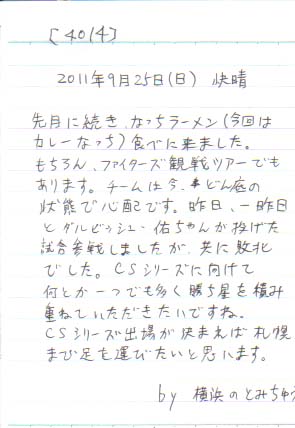 [4014]
2011年9月25日(日) 快晴
先月に続き、なっちラーメン(今回は
カレーなっち)食べに来ました。
もちろん、ファイターズ観戦ツアーでも
あります。チームは今、どん底の
状態で心配です。昨日、一昨日
とダルビッシュ・佑ちゃんが投げた
試合参戦しましたが、共に敗北
でした。CSシリーズに向けて
何とか一つでも多く勝ち星を積み
重ねていただきたいですね。
CSシリーズ出場が決まれば札幌
まで足を運びたいと思います。
by 横浜のとみちゅう